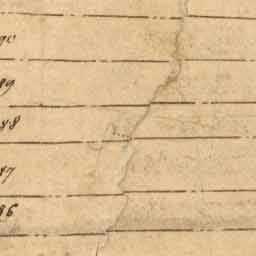 90
89
88
87
86